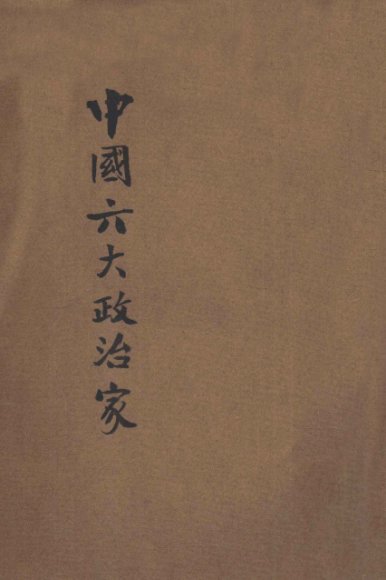 中國六大政治家